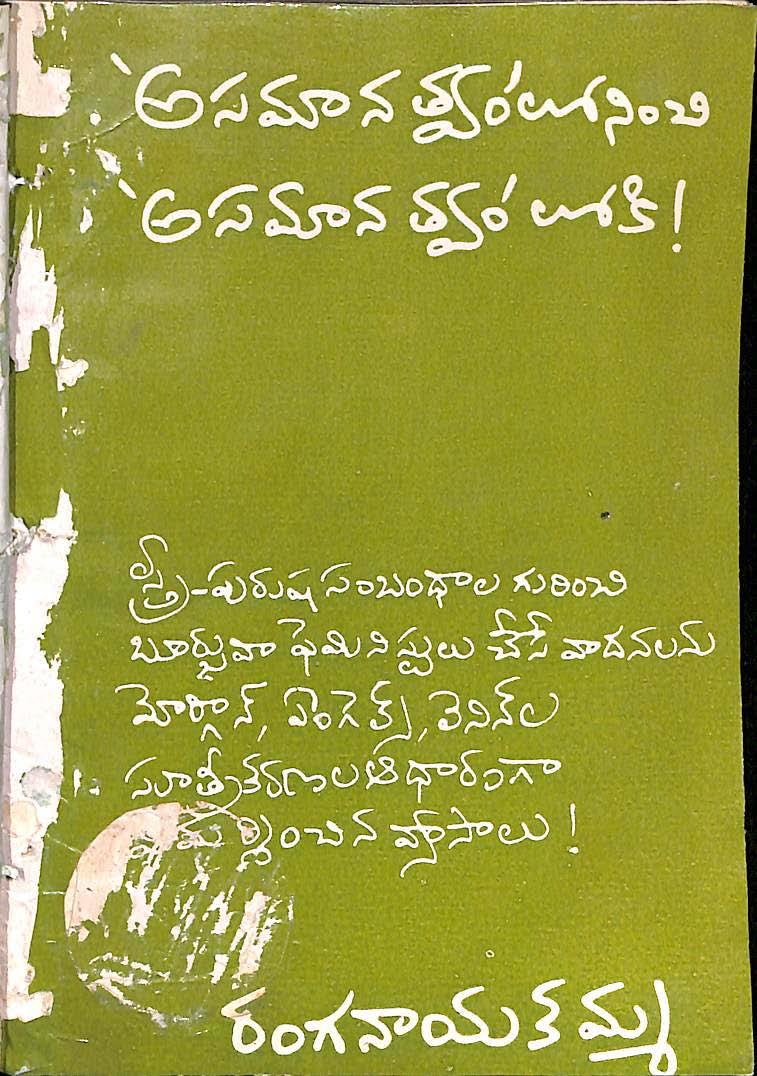 'అసమానత్వం'లోనించి
'అసమానత్వం'లోకి!
స్త్రీ-పురుష సంబంధాల గురించి
బూర్జువా ఫెమినిస్టులు చేసే వాదనలను
మోర్గాన్, ఏంగెల్స్, లెనిన్‌ల
సూత్రీకరణల ఆధారంగా
విమర్శించిన వ్యాసాలు!
రంగనాయకమ్మ